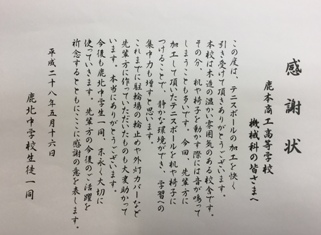 感謝状
鹿本商工高等学校
機械科の皆さまへ
この度は、テニスボールの加工を快く
引き受けて頂きありがとうございます。
本校は木造の温かい雰囲気のある校舎です。
その分、机や椅子を動かす際には音が鳴って
しまうことも多いです。今回、先輩方に
加工して頂いたテニスボールを机や椅子に
つけることで、静かな環境ができ、学習への
集中力も増すと思います。
これまでに駐輪場の輪止めや外灯カバーなど
先輩方に作っていただいたものも大変助かって
います。本当にありがとうございます。
今後も鹿北中学生一同、末永く大切に
使っていきます。先輩方の今後のご活躍を
祈念するとともにここに感謝の意を表します。
平成二十八年五月十六日
鹿北中学校生徒一同